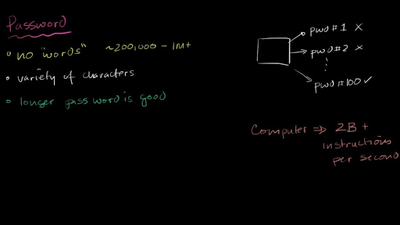 Password
• no "words" ~200,000 - 1M+
• variety of characters
• longer password is good
pwd #1 x
pwd #2 x
⋮
pwd #100 ✓
Computer ⇒ 2B +
instructions
per second